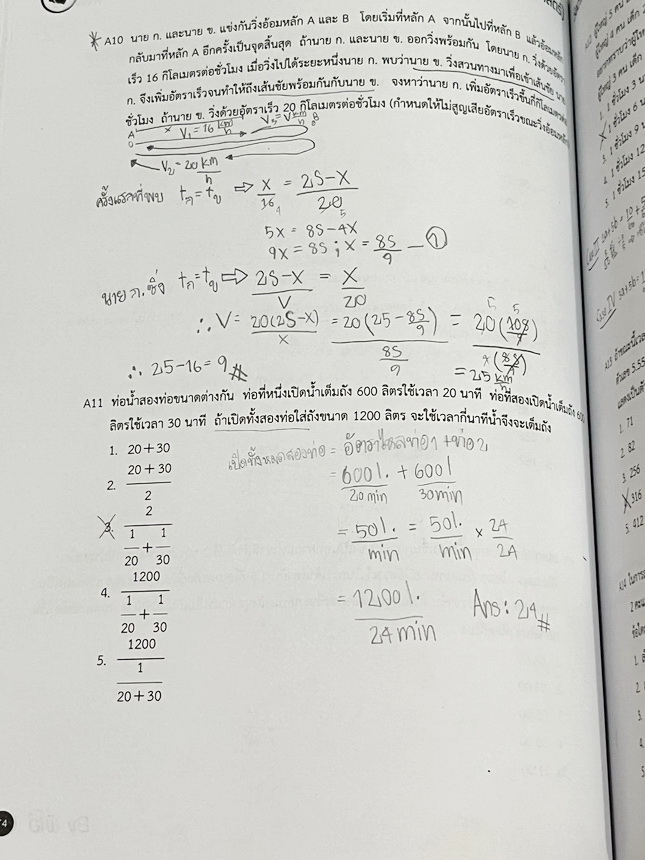 A10 นาย ก. และนาย ข. แข่งกันวิ่งอ้อมหลัก A และ B โดยเริ่มที่หลัก A จากนั้นไปที่หลัก B แล้วอ้อมหลัก
กลับมาที่หลัก A อีกครั้งเป็นจุดสิ้นสุด ถ้านาย ก. และนาย ข. ออกวิ่งพร้อมกัน โดยนาย ก. วิ่งด้วยอัตรา
เร็ว 16 กิโลเมตรต่อชั่วโมง เมื่อวิ่งไปได้ระยะหนึ่งนาย ก. พบว่านาย ข. วิ่งสวนทางมาเพื่อเข้าเส้นชัย นาย
ก. จึงเพิ่มอัตราเร็วจนทำให้ถึงเส้นชัยพร้อมกันกับนาย ข. จงหาว่านาย ก. เพิ่มอัตราเร็วขึ้นกี่กิโลเมตรต่อ
ชั่วโมง ถ้านาย ข. วิ่งด้วยอัตราเร็ว 20 กิโลเมตรต่อชั่วโมง (กำหนดให้ไม่สูญเสียอัตราเร็วขณะวิ่งอ้อมหลัก)
A x V₁ = 16 km/h B
V₂ = 20 km/h
ครั้งแรกที่พบ tก = tข ⇒ x/16 = (2S-x)/20
5x = 8S-4x
9x = 8S ; x = 8S/9 — ①
นาย ก. ซิ่ง tก = tข ⇒ (2S-x)/V = x/20
∴ V = 20(2S-x)/x = 20(2S - 8S/9)/(8S/9) = 20(10S/9)/(8S/9)
= 25 km/h
∴ 25-16 = 9 #
A11 ท่อน้ำสองท่อขนาดต่างกัน ท่อที่หนึ่งเปิดน้ำเต็มถัง 600 ลิตรใช้เวลา 20 นาที ท่อที่สองเปิดน้ำเต็มถัง 600
ลิตรใช้เวลา 30 นาที ถ้าเปิดทั้งสองท่อใส่ถังขนาด 1200 ลิตร จะใช้เวลากี่นาทีน้ำจึงจะเต็มถัง
1. 20 + 30
2. (20 + 30)/2
3. 2/(1/20 + 1/30)
4. 1200/(1/20 + 1/30)
5. 1200/(1/(20 + 30))
เปิดทั้งหมดสองท่อ = อัตราไหลท่อ 1 + ท่อ 2
= 600 l./20 min + 600 l/30 min
= 50 l./min = 50 l./min × 24/24
= 1200 l./24 min Ans : 24 #